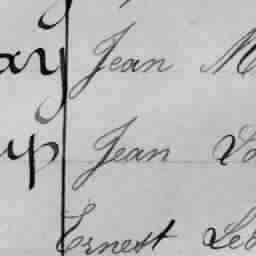 ay Jean M
up Jean Lo
Ernest Leb